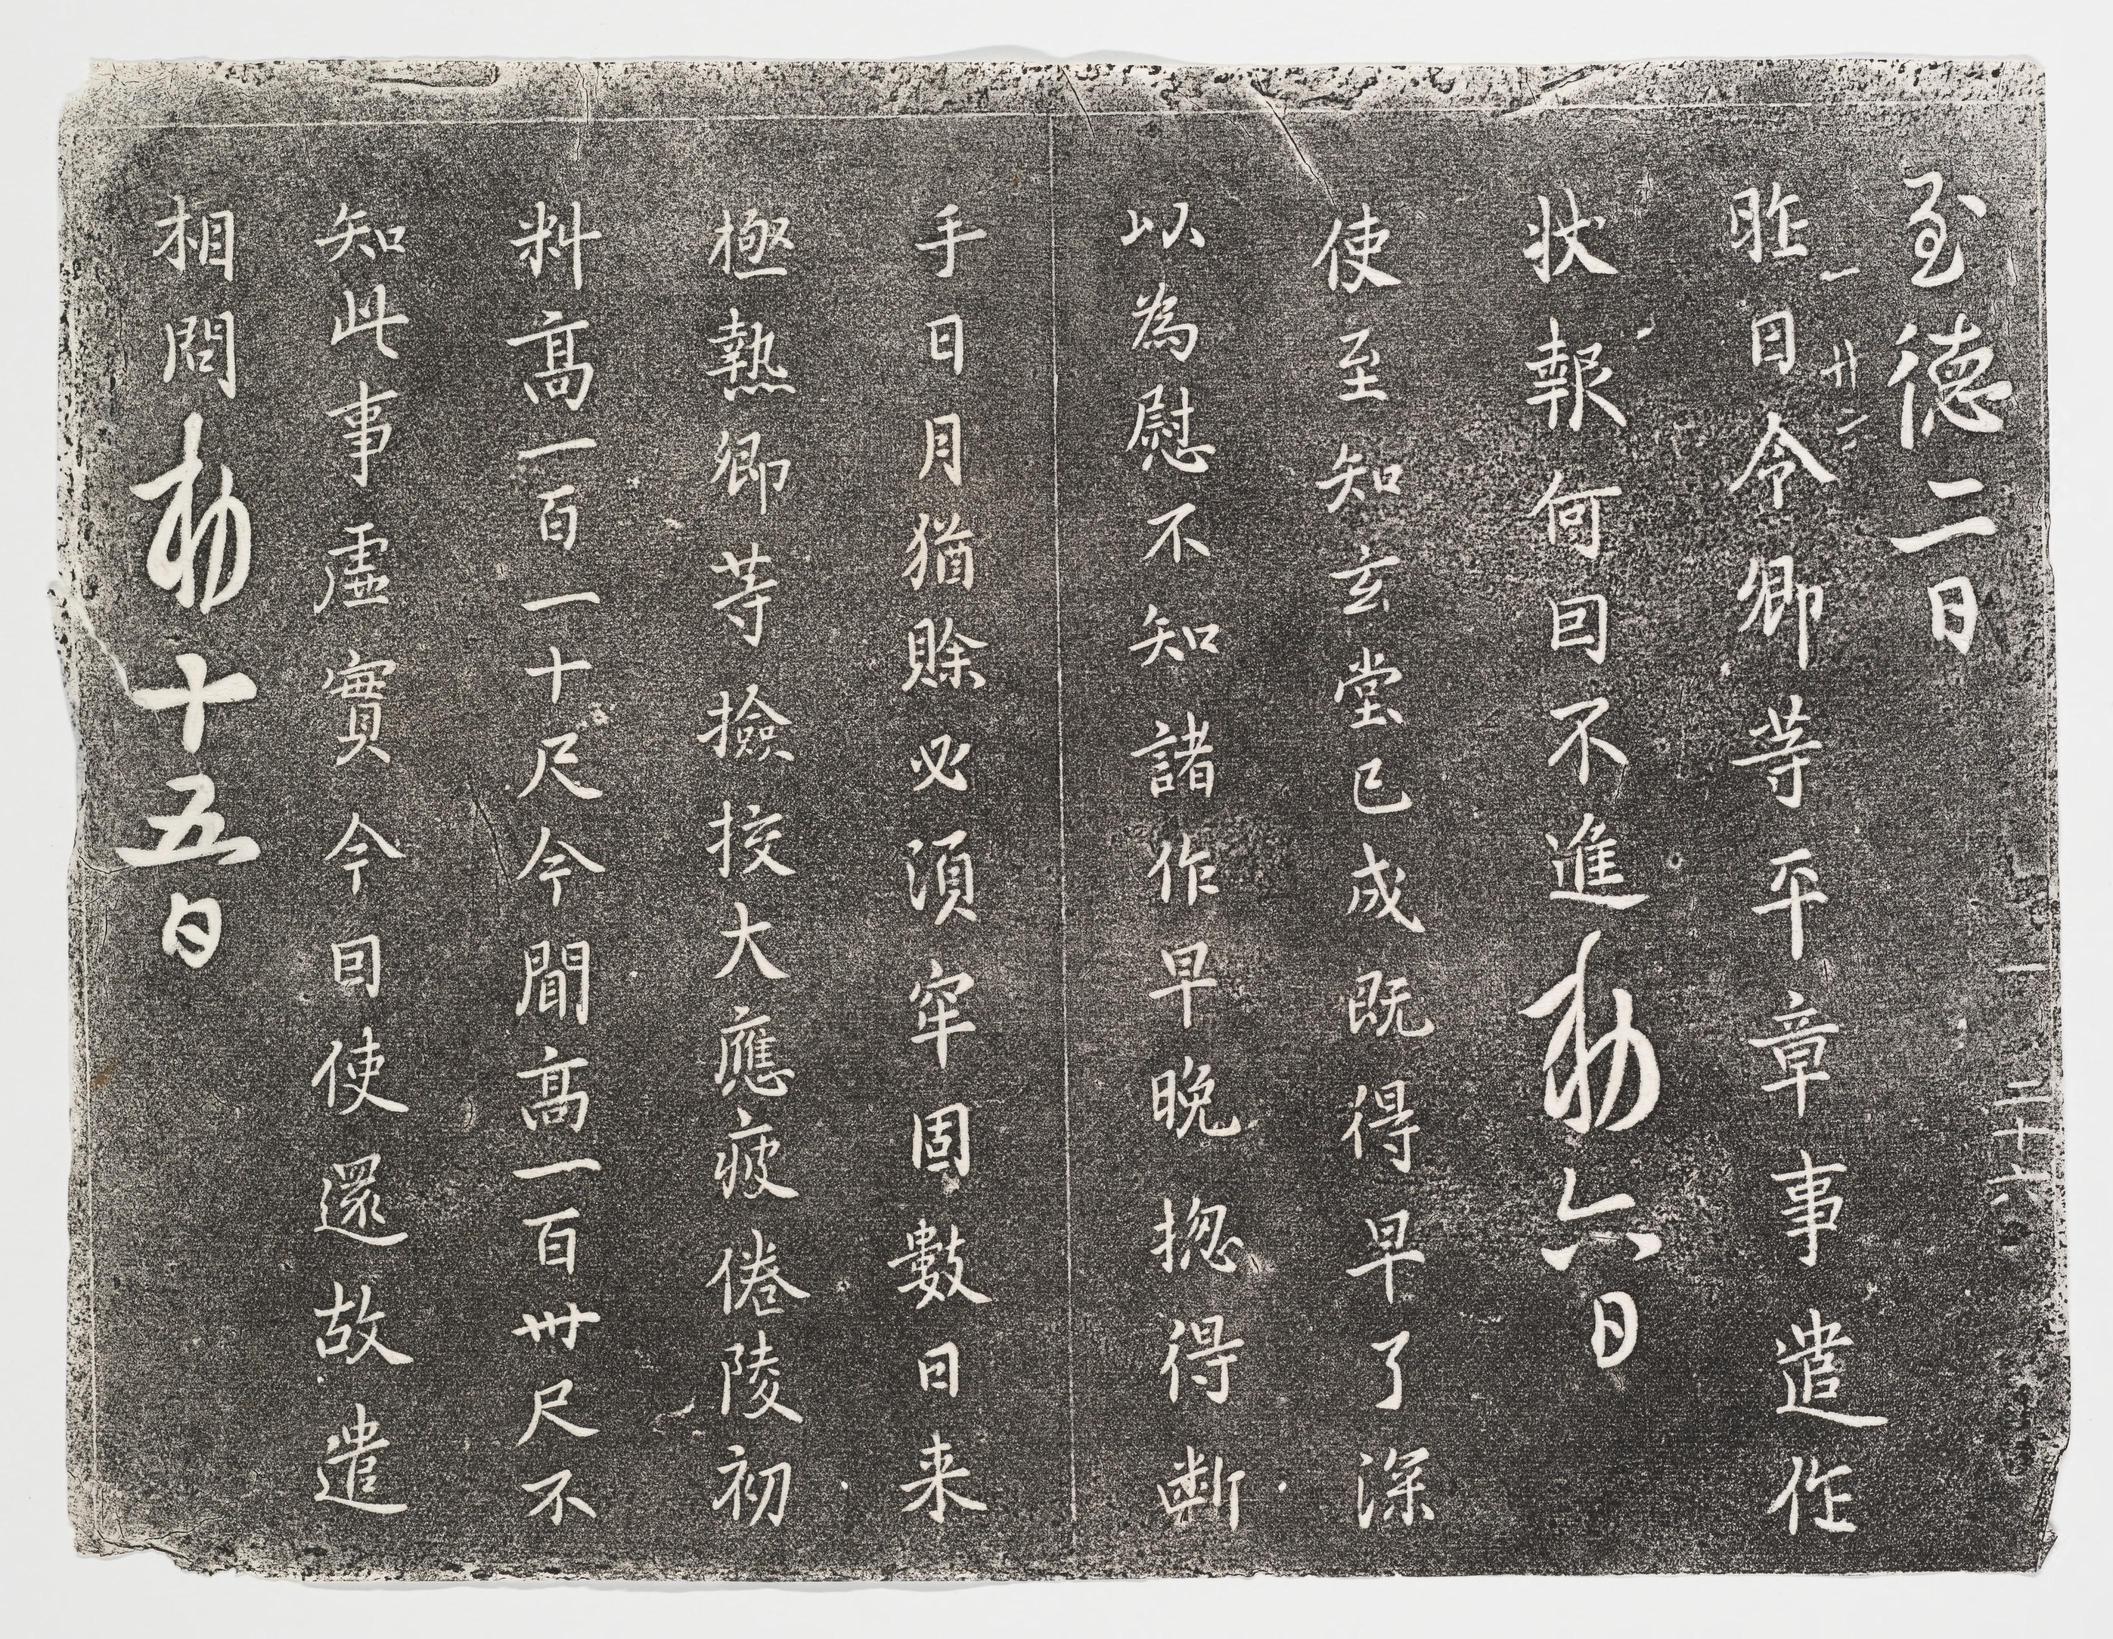 至德二日
昨日令卿等平章事遣作
状報何因不進勑六日
使至知玄堂已成既得早了深
以為慰不知諸作早晚揔得断
手日月猶賒必須牢固數日来
極熱卿等撿挍大應疲倦陵初
料高一百一十尺今聞高一百卅尺不
知此事虛實今因使還故遣
相問勑十五日
一
廿二
一
二十六